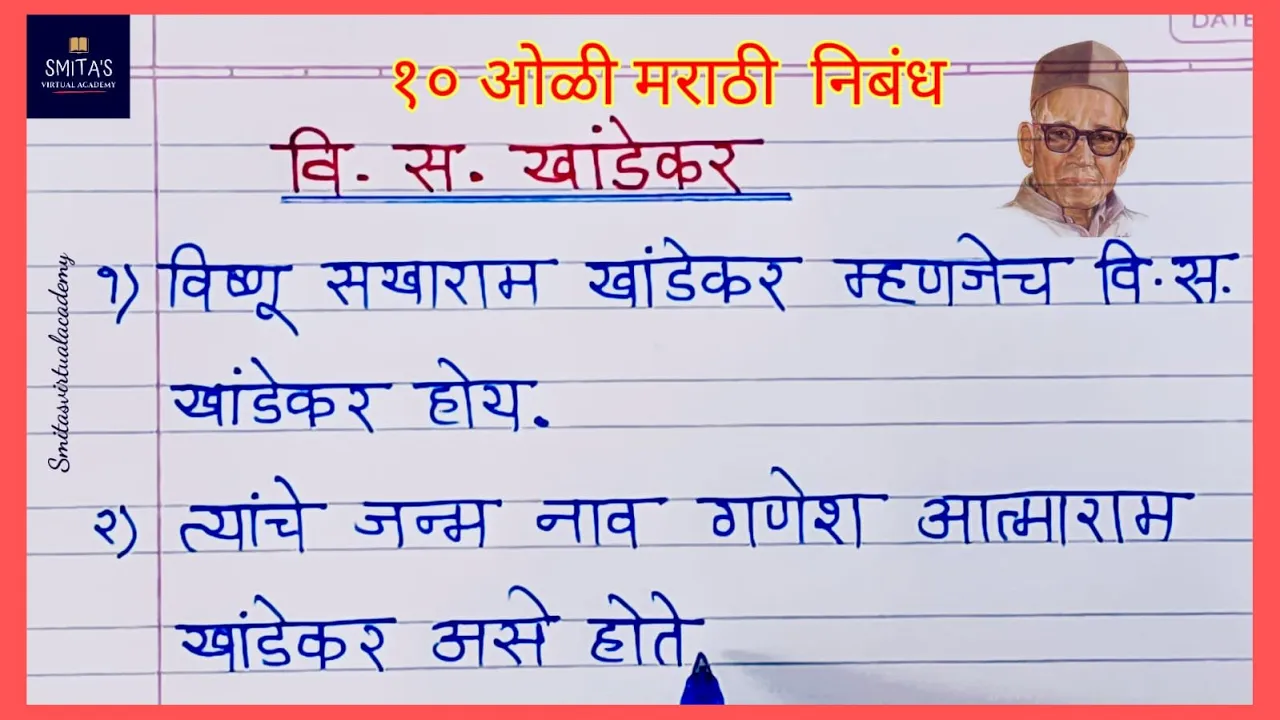 SMITA'S
VIRTUAL ACADEMY
DATE
१० ओळी मराठी निबंध
वि. स. खांडेकर
Smitasvirtualacademy
१) विष्णू सखाराम खांडेकर म्हणजेच वि.स.
खांडेकर होय.
२) त्यांचे जन्म नाव गणेश आत्माराम
खांडेकर असे होते.